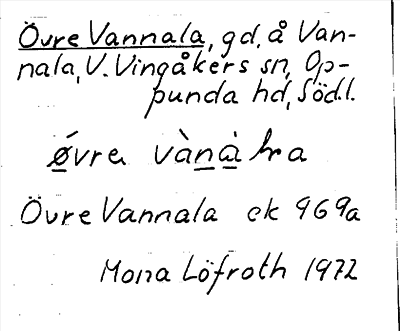 Övre Vannala, gd, å Van-
nala, V. Vingåkers sn, Op-
punda hd, Södl.
ǿvre vànàla
Övre Vannala ek 969a
Mona Löfroth 1972